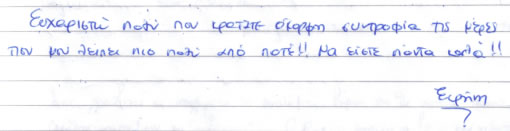 Ευχαριστώ πολύ που κρατάτε όμορφη συντροφιά τις μέρες
που μου λείπει πιο πολύ από ποτέ!! Να είστε πάντα καλά!!
Ειρήνη